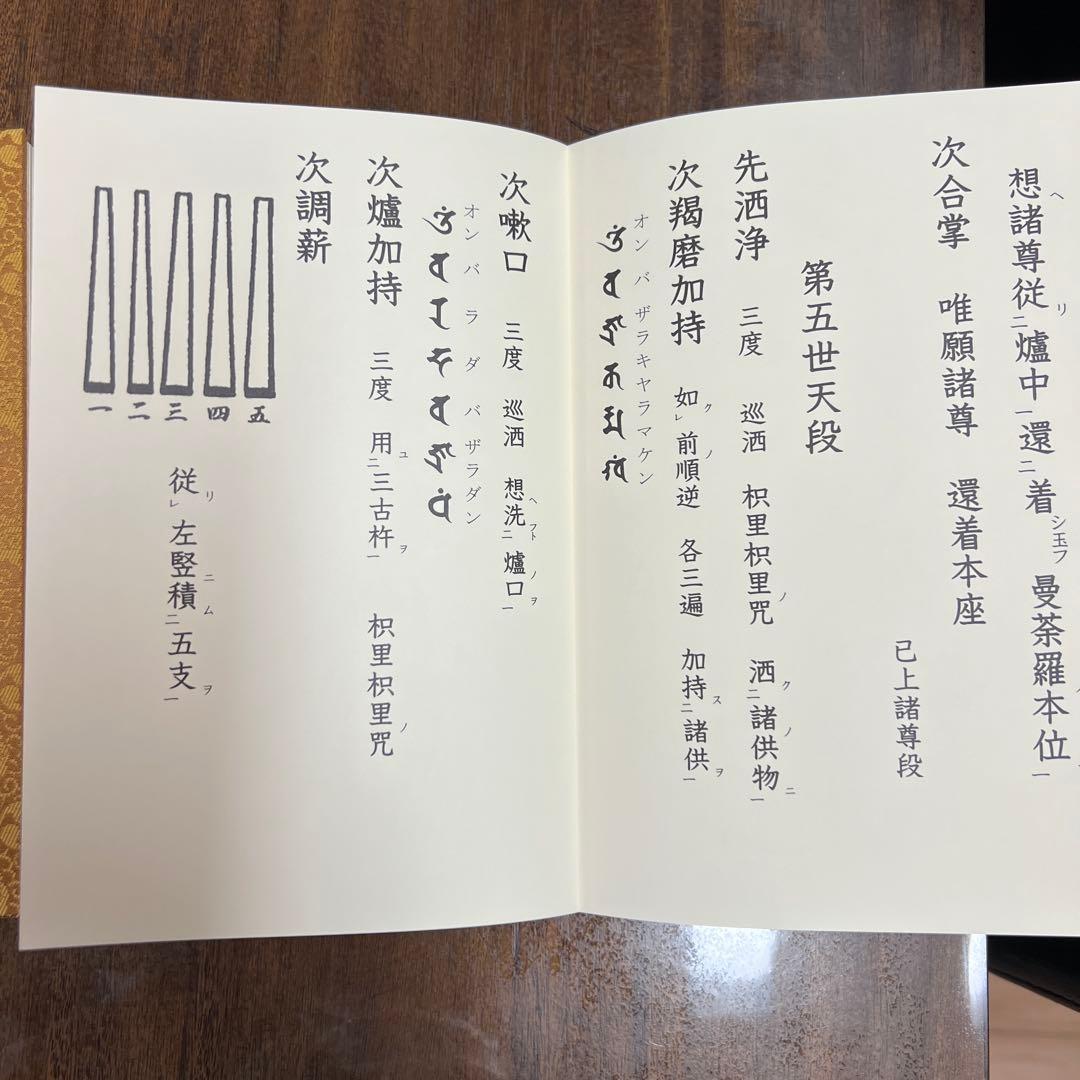 想ヘ諸尊従リ二爐中一還二着シ玉フ曼荼羅本位一
次合掌 唯願諸尊 還着本座
已上諸尊段
第五世天段
先洒浄 三度 巡洒 枳里枳里ノ咒 洒ク二諸ノ供物ニ一
次羯磨加持 如クレ前ノ順逆 各三遍 加持ス二諸供ヲ一
オン バ ザラ キャラ マ ケン
次嗽口 三度 巡洒 想ヘ洗フト二爐口ノヲ一
オン バ ラ ダ バ ザラ ダン
次爐加持 三度 用ユ二三古杵ヲ一 枳里枳里ノ咒
次調薪
五
四
三
二
一
従リレ左竪ニ積ム二五支ヲ一